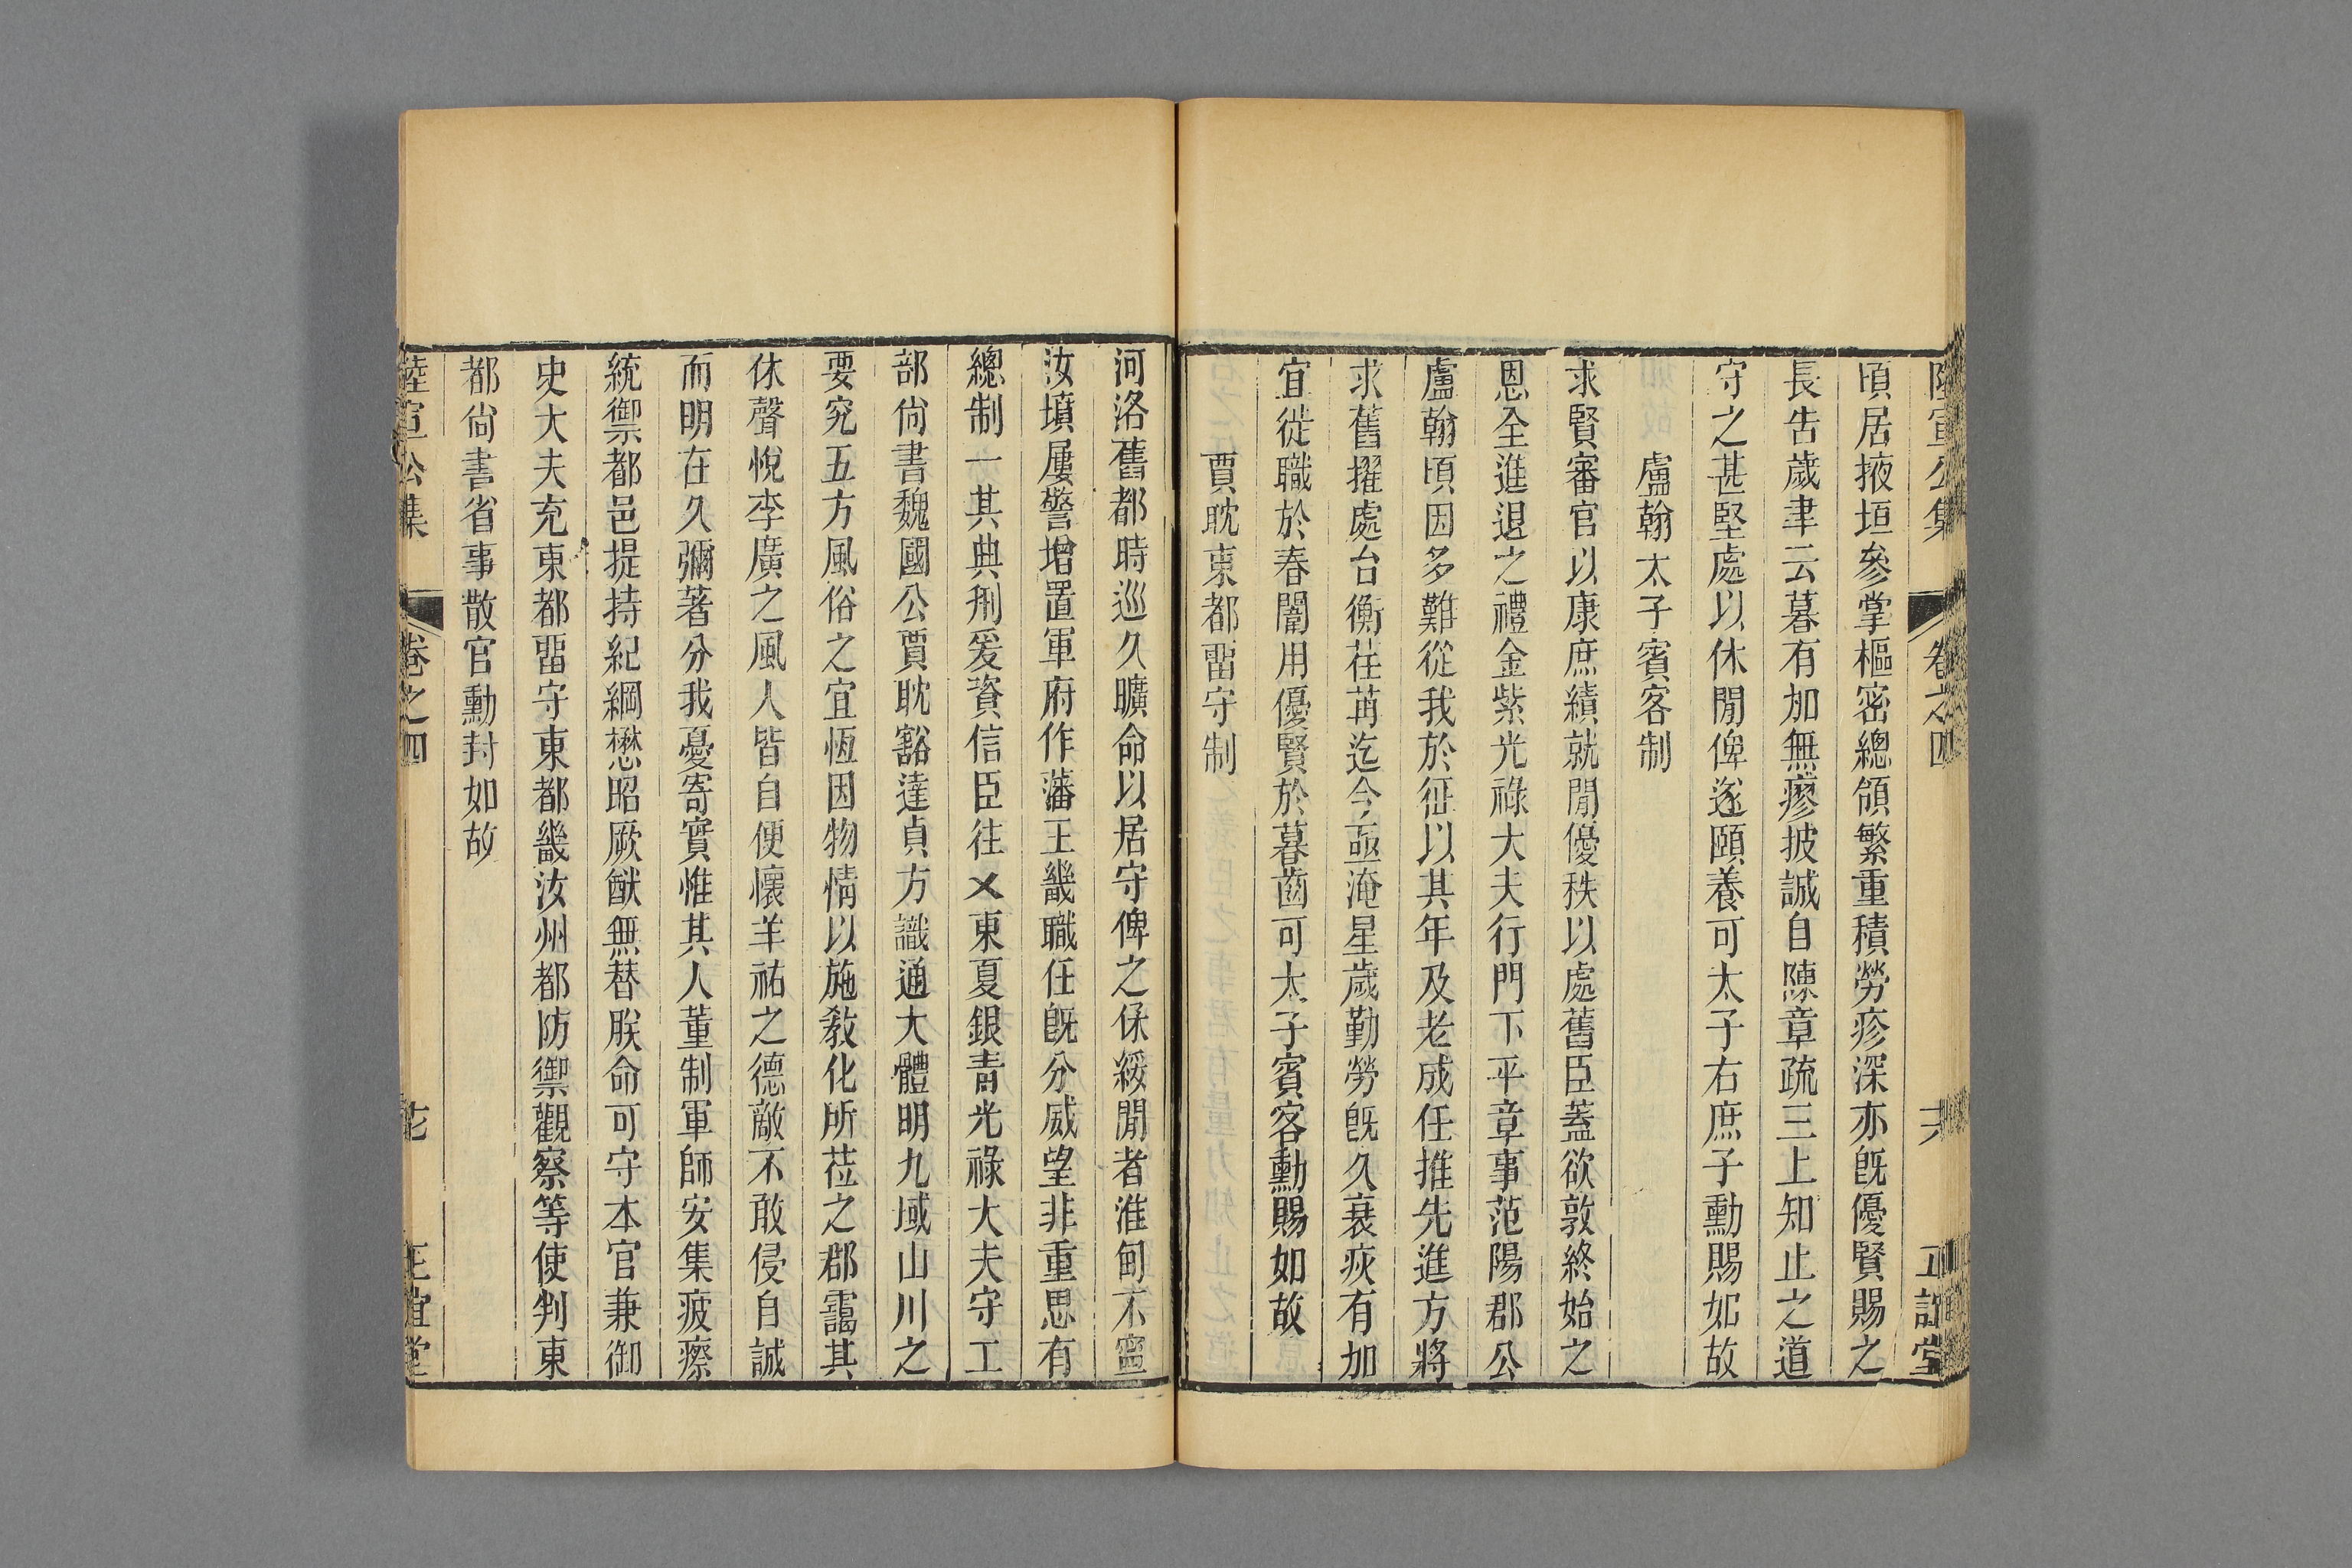 陸宣公集 卷之四 六 正誼堂
頃居掖垣參掌樞密總領繁重積勞疹深亦旣優賢賜之
長告歲聿云暮有加無瘳披誠自陳章疏三上知止之道
守之甚堅處以休閒俾遂頤養可太子右庶子勳賜如故
盧翰太子賓客制
求賢審官以康庶績就閒優秩以處舊臣蓋欲敦終始之
恩全進退之禮金紫光祿大夫行門下平章事范陽郡公
盧翰頃因多難從我於征以其年及老成任推先進方將
求舊擢處台衡荏苒迄今亟淹星歲勤勞旣久衰疢有加
宜從職於春闈用優賢於暮齒可太子賓客勳賜如故
賈耽東都畱守制
河洛舊都時巡久曠命以居守俾之保綏閒者淮甸不寧
汝墳屢警增置軍府作藩王畿職任旣分威望非重思有
總制一其典刑爰資信臣往乂東夏銀青光祿大夫守工
部尙書魏國公賈耽豁達貞方識通大體明九域山川之
要究五方風俗之宜恆因物情以施教化所莅之郡靄其
休聲悅李廣之風人皆自便懷羊祜之德敵不敢侵自誠
而明在久彌著分我憂寄實惟其人董制軍師安集疲瘵
統禦都邑提持紀綱懋昭厥猷無替朕命可守本官兼御
史大夫充東都畱守東都畿汝州都防禦觀察等使判東
都尙書省事散官勳封如故
陸宣公集 卷之四 正誼堂